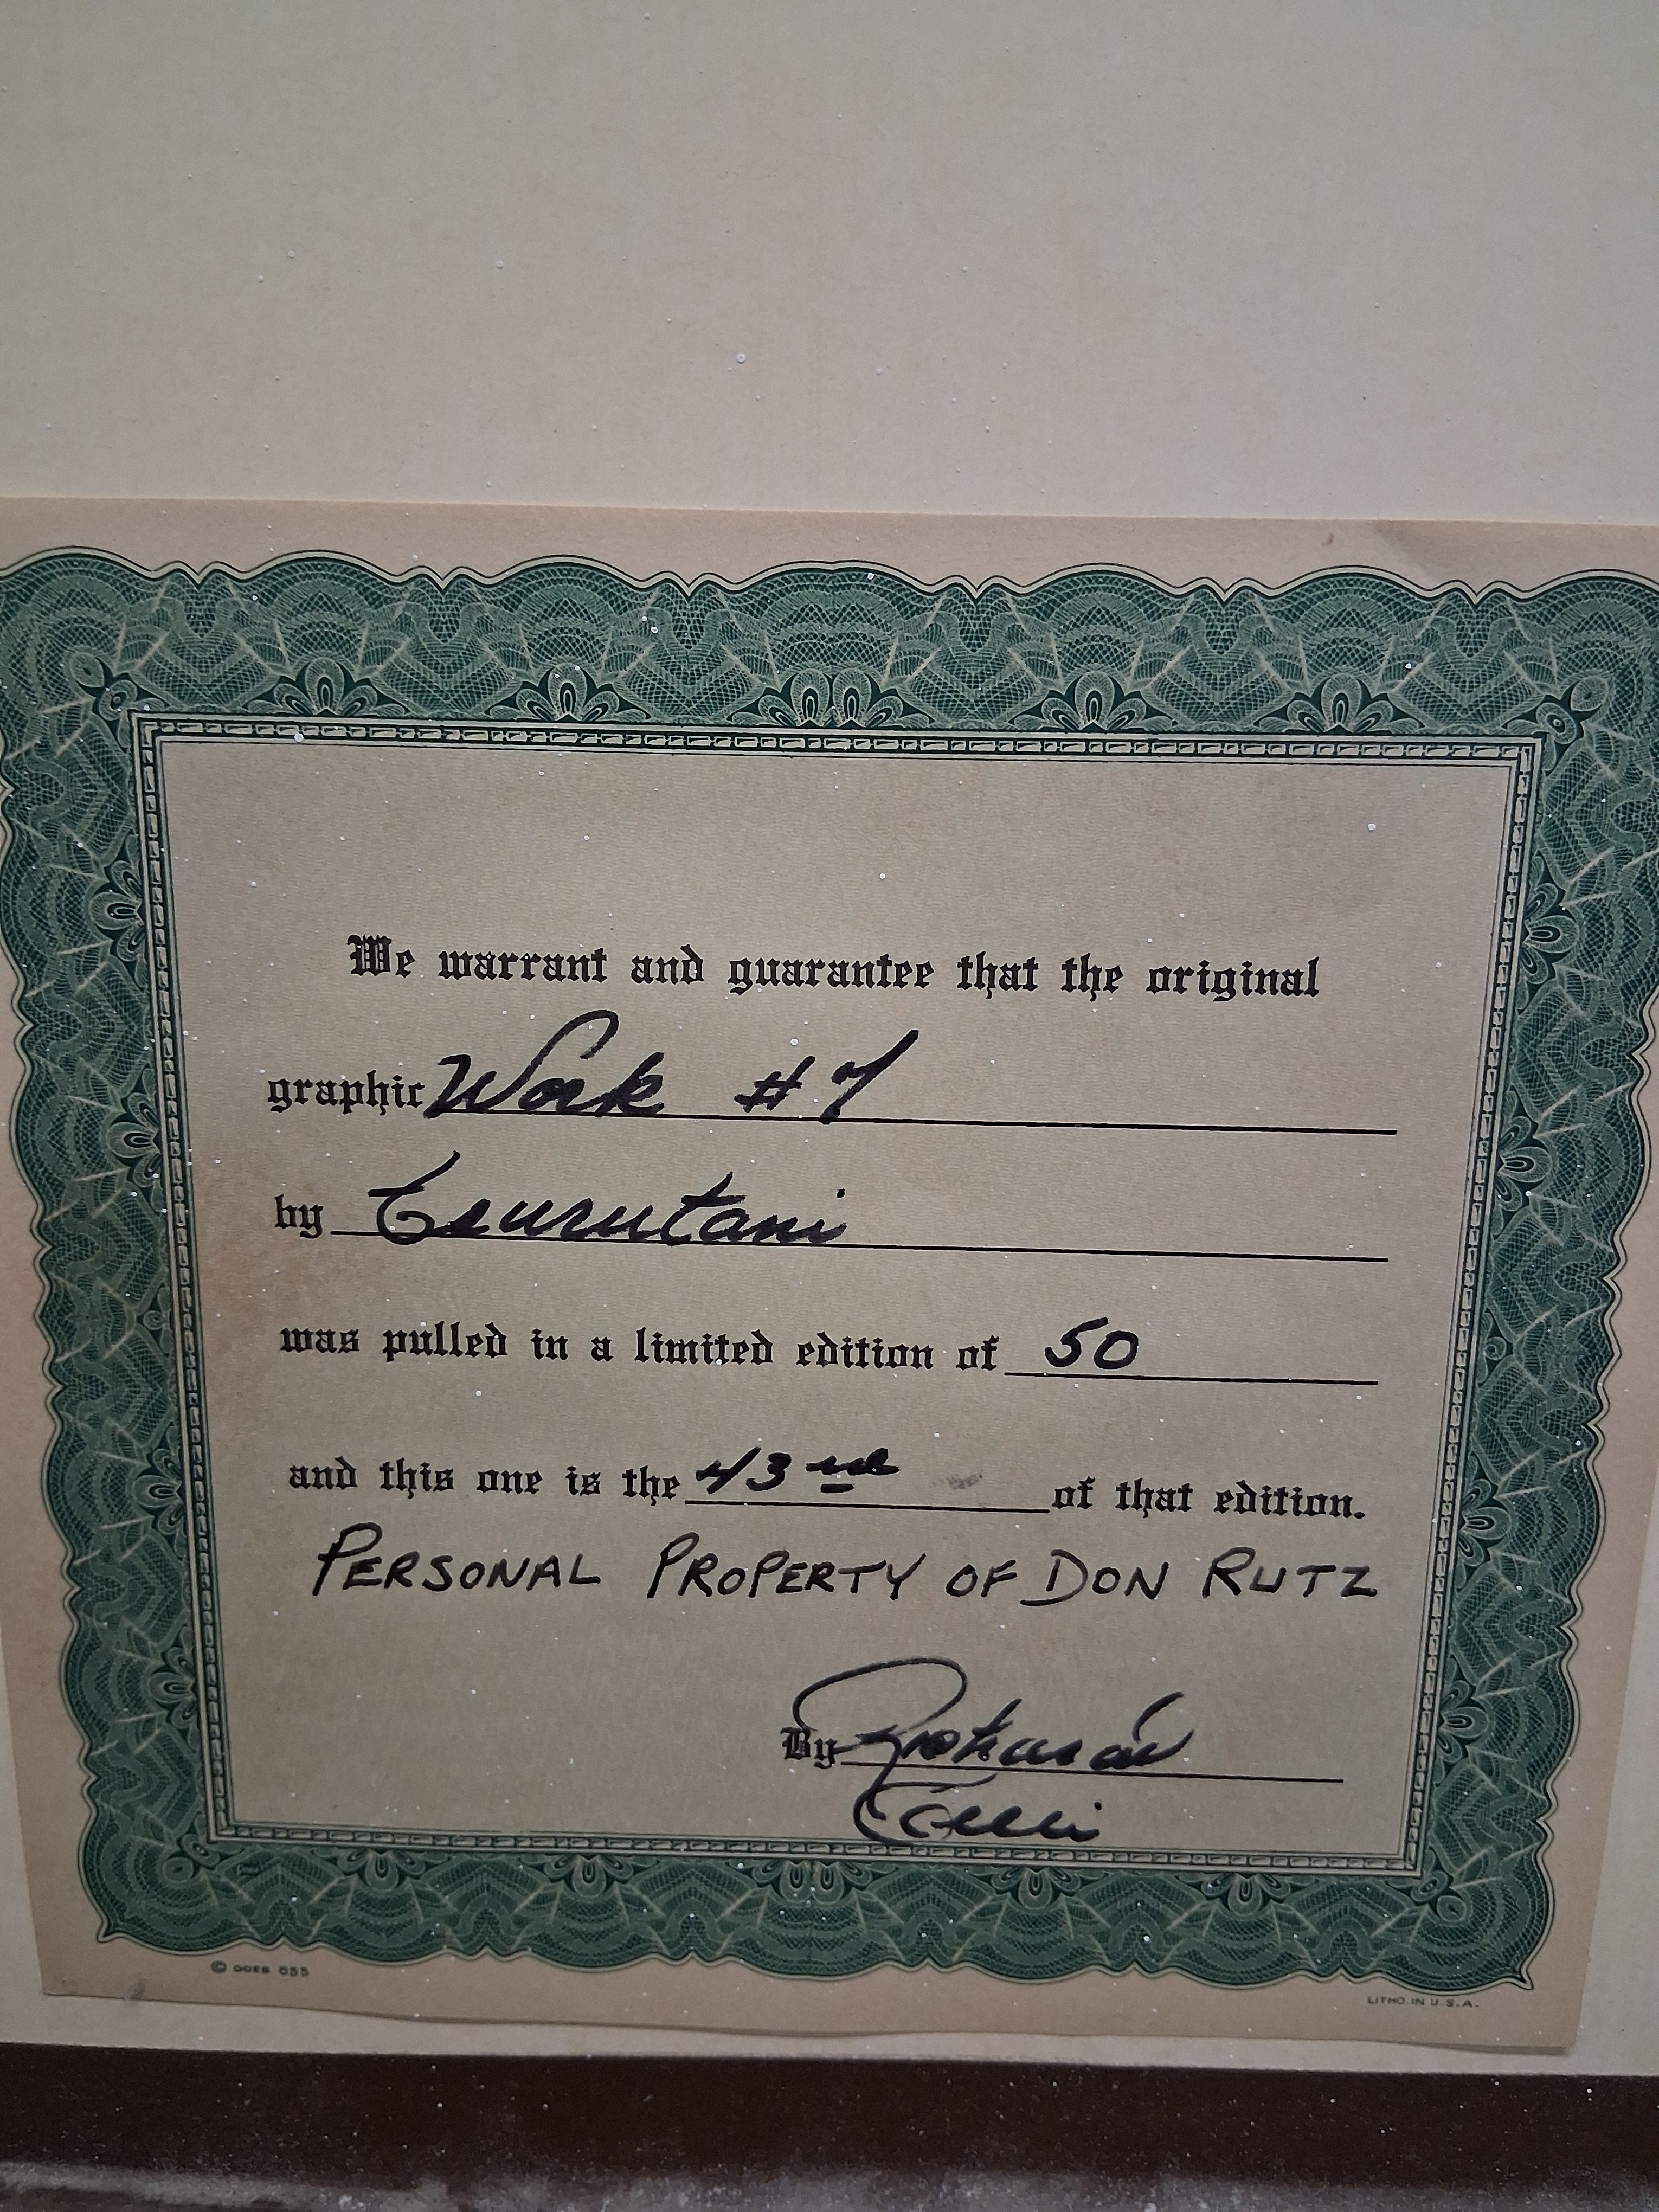 We warrant and guarantee that the original
graphic Work #7
by Tsurutani
was pulled in a limited edition of 50
and this one is the 43rd of that edition.
PERSONAL PROPERTY OF DON RUTZ
By
© GOES 655
LITHO. IN U.S.A.